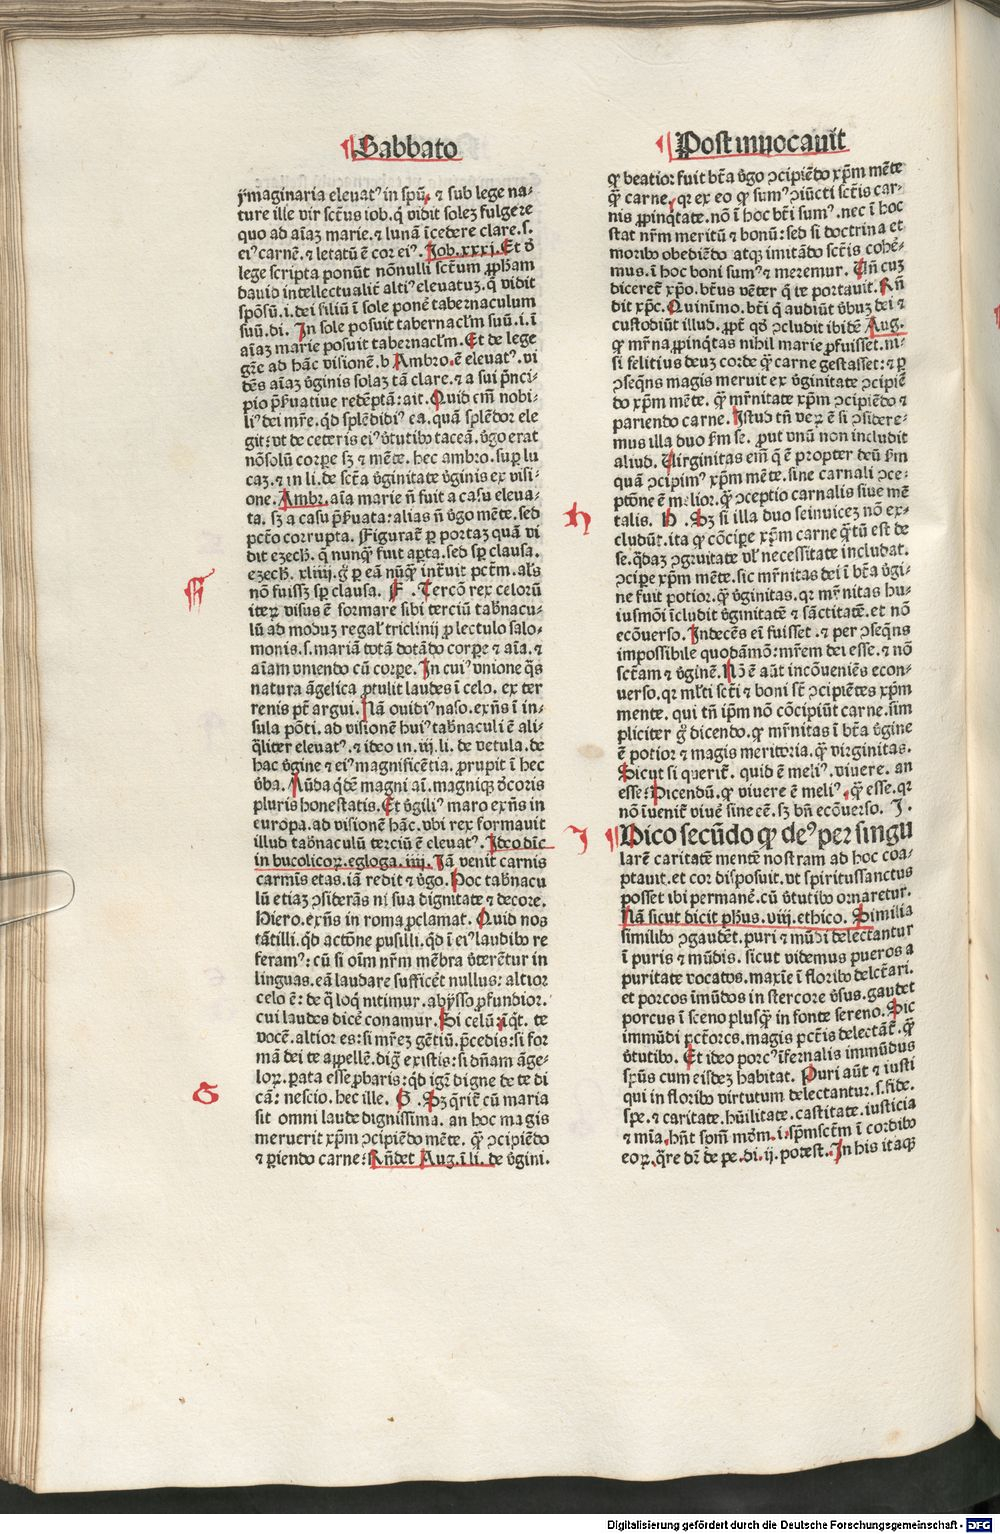 Sabbato
ymaginaria eleuatꝰ in spū. ⁊ sub lege na-
ture ille vir sct̄us iob. q̄ vidit solez fulgere
quo ad aīaz marie. ⁊ lunā īcedere clare. s.
eiꝰ carnē. ⁊ letatū ē cor eiꝰ. Iob. xxxj. Et ꝟ
lege scripta ponūt nōnulli sct̄um ꝓph̄am
dauid intellectualit̄ altiꝰ eleuatuz. q̄ vidit
spōsū. i. dei filiū ī sole ponē tabernaculum
suū. di. In sole posuit tabernacl̄m suū. i. ī
aīaz marie posuit tabernacl̄m. Et de lege
gr̄e ad hāc visionē. b Ambro. ē eleuatꝰ. vi
dēs aīaz ꝟginis solaz tā clare. ⁊ a sui p̄nci-
pio p̄ẜuatiue redēptā: ait. Quid cm̄ nobi-
liꝰ dei mr̄e. qd̄ splēdidiꝰ ea. quā splēdor ele
git: vt de ceteris eiꝰ ꝟtutibꝰ taceā. ꝟgo erat
nōsolū corꝑe sꝫ ⁊ mēte. hec ambro. suꝑ lu
caz. ⁊ in li. de sct̄a ꝟginitate ꝟginis ex visi-
one. Ambr. aīa marie n̄ fuit a casu eleua-
ta. sꝫ a casu p̄ẜuata: alias n̄ ꝟgo mēte. sed
pctō corrupta. Figurat̄ ꝑ portaz quā vi
dit ezech̄. q̄ nunqꝫ fuit aꝑta. sed sꝑ clausa.
ezech̄. xliiij. gͦ ꝑ eā nūqꝫ intͣuit pctm̄. al̄s
nō fuissꝫ sꝑ clausa. F . Tercō rex celorū
iteꝝ visus ē formare sibi terciū tab̄nacu-
lū ad moduz regal̄ triclinij ꝓ lectulo salo-
monis. s. mariā totā dotādo corꝑe ⁊ aīa. ⁊
aīam vniendo cū corꝑe. In cuiꝰ vnione q̄s
natura āgelica ꝓtulit laudes ī celo. ex ter
renis pt̄ argui. Nā ouidiꝰ naso. exn̄s ī in-
sula pōti. ad visionē huiꝰ tab̄naculi ē ali-
qͣliter eleuatꝰ. ⁊ ideo in. iij. li. de vetula. de
hac ꝟgine ⁊ eiꝰ magnificētia. ꝓrupit ī hec
ꝟba. Aūda qͥdē magni aī. magniqꝫ ꝺcoris
pluris honestatis. Et ꝟgiliꝰ maro exn̄s in
europa. ad visionē hāc. vbi rex formauit
illud tab̄naculū terciū ē eleuatꝰ. Ideo dīc
in bucolicoꝝ. egloga. iiij. Iā venit carnis
carmīs etas. iā redit ⁊ ꝟgo. Hoc tab̄nacu
lū etiaz ꝯsiderās ni sua dignitate ⁊ decore.
Hiero. exn̄s in roma ꝓclamat. Quid nos
tātilli. qd̄ actōne pusilli. qd̄ ī eiꝰ laudibꝰ re
feramꝰ: cū si oīm nr̄m mēbra ꝟterētur in
linguas. eā laudare sufficēt nullus: altior
celo ē: de q̄ loqͥ nitimur. abysso ꝓfundior.
cui laudes dicē conamur. Si celū: īqͥt. te
vocē. altior es: si mr̄ez gētiū. p̄cedis: si for
mā dei te appellē. digͣ existis: si dn̄am āge-
loꝝ. ꝑata esse ꝓbaris: qd̄ igͥt̄ digne de te di
cā: nescio. hec ille. G . Sꝫ q̄rit̄ cū maria
sit omni laude dignissima. an hoc magis
meruerit xp̄m ꝯcipiēdo mēte. qꝫ ꝯcipiēdo
⁊ ꝑiendo carne: Rn̄det Aug. ī li. de ꝟgini.
F
G
Post inuocauit
ꝙ beatior fuit bt̄a ꝟgo ꝯcipiēdo xp̄m mēte
qꝫ carne. qꝛ ex eo ꝙ sumꝰ ꝯiūcti sct̄is car-
nis ꝓpinqͥtate. nō ī hoc bt̄i sumꝰ. nec ī hoc
stat nr̄m meritū ⁊ bonū: sed si doctrina et
moribꝰ obediēdo atqꝫ imitādo sct̄is cohē-
mus. ī hoc boni sumꝰ ⁊ meremur. Un̄ cuz
diceret̄ xp̄o. bt̄us vēter q̄ te portauit. Rn̄
dit xp̄c. Quinimo. bt̄i q̄ audiūt ꝟbuz dei ⁊
custodiūt illud. ꝓpt̄ qd̄ ꝯcludit ibidē Aug.
ꝙ mr̄na ꝓpinqͥtas nihil marie ꝓfuisset. ni-
si felitius deuz corde qꝫ carne gestasset: ⁊ ꝑ
ꝯseqn̄s magis meruit ex ꝟginitate ꝯcipiē
do xp̄m mēte. qꝫ mr̄nitate xp̄m ꝯcipiēdo ⁊
pariendo carne. Istud tn̄ veꝝ ē si ꝯsidere-
mus illa duo ẜm se. ꝓut vnū non includit
aliud. Uirginitas em̄ q̄ ē propter deū ẜm
quā ꝯcipimꝰ xp̄m mēte. sine carnali ꝯce-
ptōne ē melior. qꝫ ꝯceptio carnalis siue mē
talis. H . Sꝫ si illa duo seinuicez nō ex-
cludūt. ita ꝙ cōcipe xp̄m carne qͣtū est de
se. qͣdaz ꝯgruitate vl̄ necessitate includat.
ꝯcipe xp̄m mēte. sic mr̄nitas dei ī bt̄a ꝟgi-
ne fuit potior. qꝫ ꝟginitas. qꝛ mr̄nitas hu-
iusmōi īcludit ꝟginitatē ⁊ sāctitatē. et nō
ecōuerso. Indecēs eī fuisset. ⁊ per ꝯseqn̄s
impossibile quodāmō: mr̄em dei esse. ⁊ nō
sct̄am ⁊ ꝟginē. Nō ē aūt incōueniēs econ-
uerso. qꝛ ml̄ti sct̄i ⁊ boni st̄ ꝯcipiētes xp̄m
mente. qui tn̄ ip̄m nō cōcipiūt carne. sim
pliciter gͦ dicendo. ꝙ mr̄nitas ī bt̄a ꝟgine
ē potior ⁊ magis meritoria. qꝫ virginitas.
Sicut si querit̄. quid ē meliꝰ. viuere. an
esse: Dicendū. ꝙ viuere ē meliꝰ. qꝫ esse. qꝛ
nō īuenit̄ viuē sine eē. sꝫ bn̄ ecōuerso. I .
Dico secūdo ꝙ deꝰ per singu
larē caritatē mentē nostram ad hoc coa-
ptauit. et cor disposuit. vt spiritussanctus
posset ibi permanē. cū ꝟtutibꝰ ornaretur.
Nā sicut dicit ph̄us. viij. ethico. Similia
similibꝰ ꝯgaudēt. puri ⁊ mūdi delectantur
ī puris ⁊ mūdis. sicut videmus pueros a
puritate vocatos. maxīe ī floribꝰ delct̄ari.
et porcos īmūdos in stercore ꝟsus. gaudet
porcus ī sceno plusqꝫ in fonte sereno. Sic
immūdi pct̄ores. magis pct̄is delectāt̄. qꝫ
ꝟtutibꝰ. Et ideo porcꝰ īfernalis immūdus
sp̄us cum eisdez habitat. Puri aūt ⁊ iusti
qui in floribꝰ virtutum delectantur. s. fide.
spe. ⁊ caritate. hūilitate. castitate. iusticia
⁊ mīa. hn̄t spm̄ mūdm̄. i. sp̄msct̄m ī cordibꝰ
eoꝝ. qͣre dr̄ de pe. di. ij. potest. In his itaqꝫ
H
I
Digitalisierung gefördert durch die Deutsche Forschungsgemeinschaft - DFG